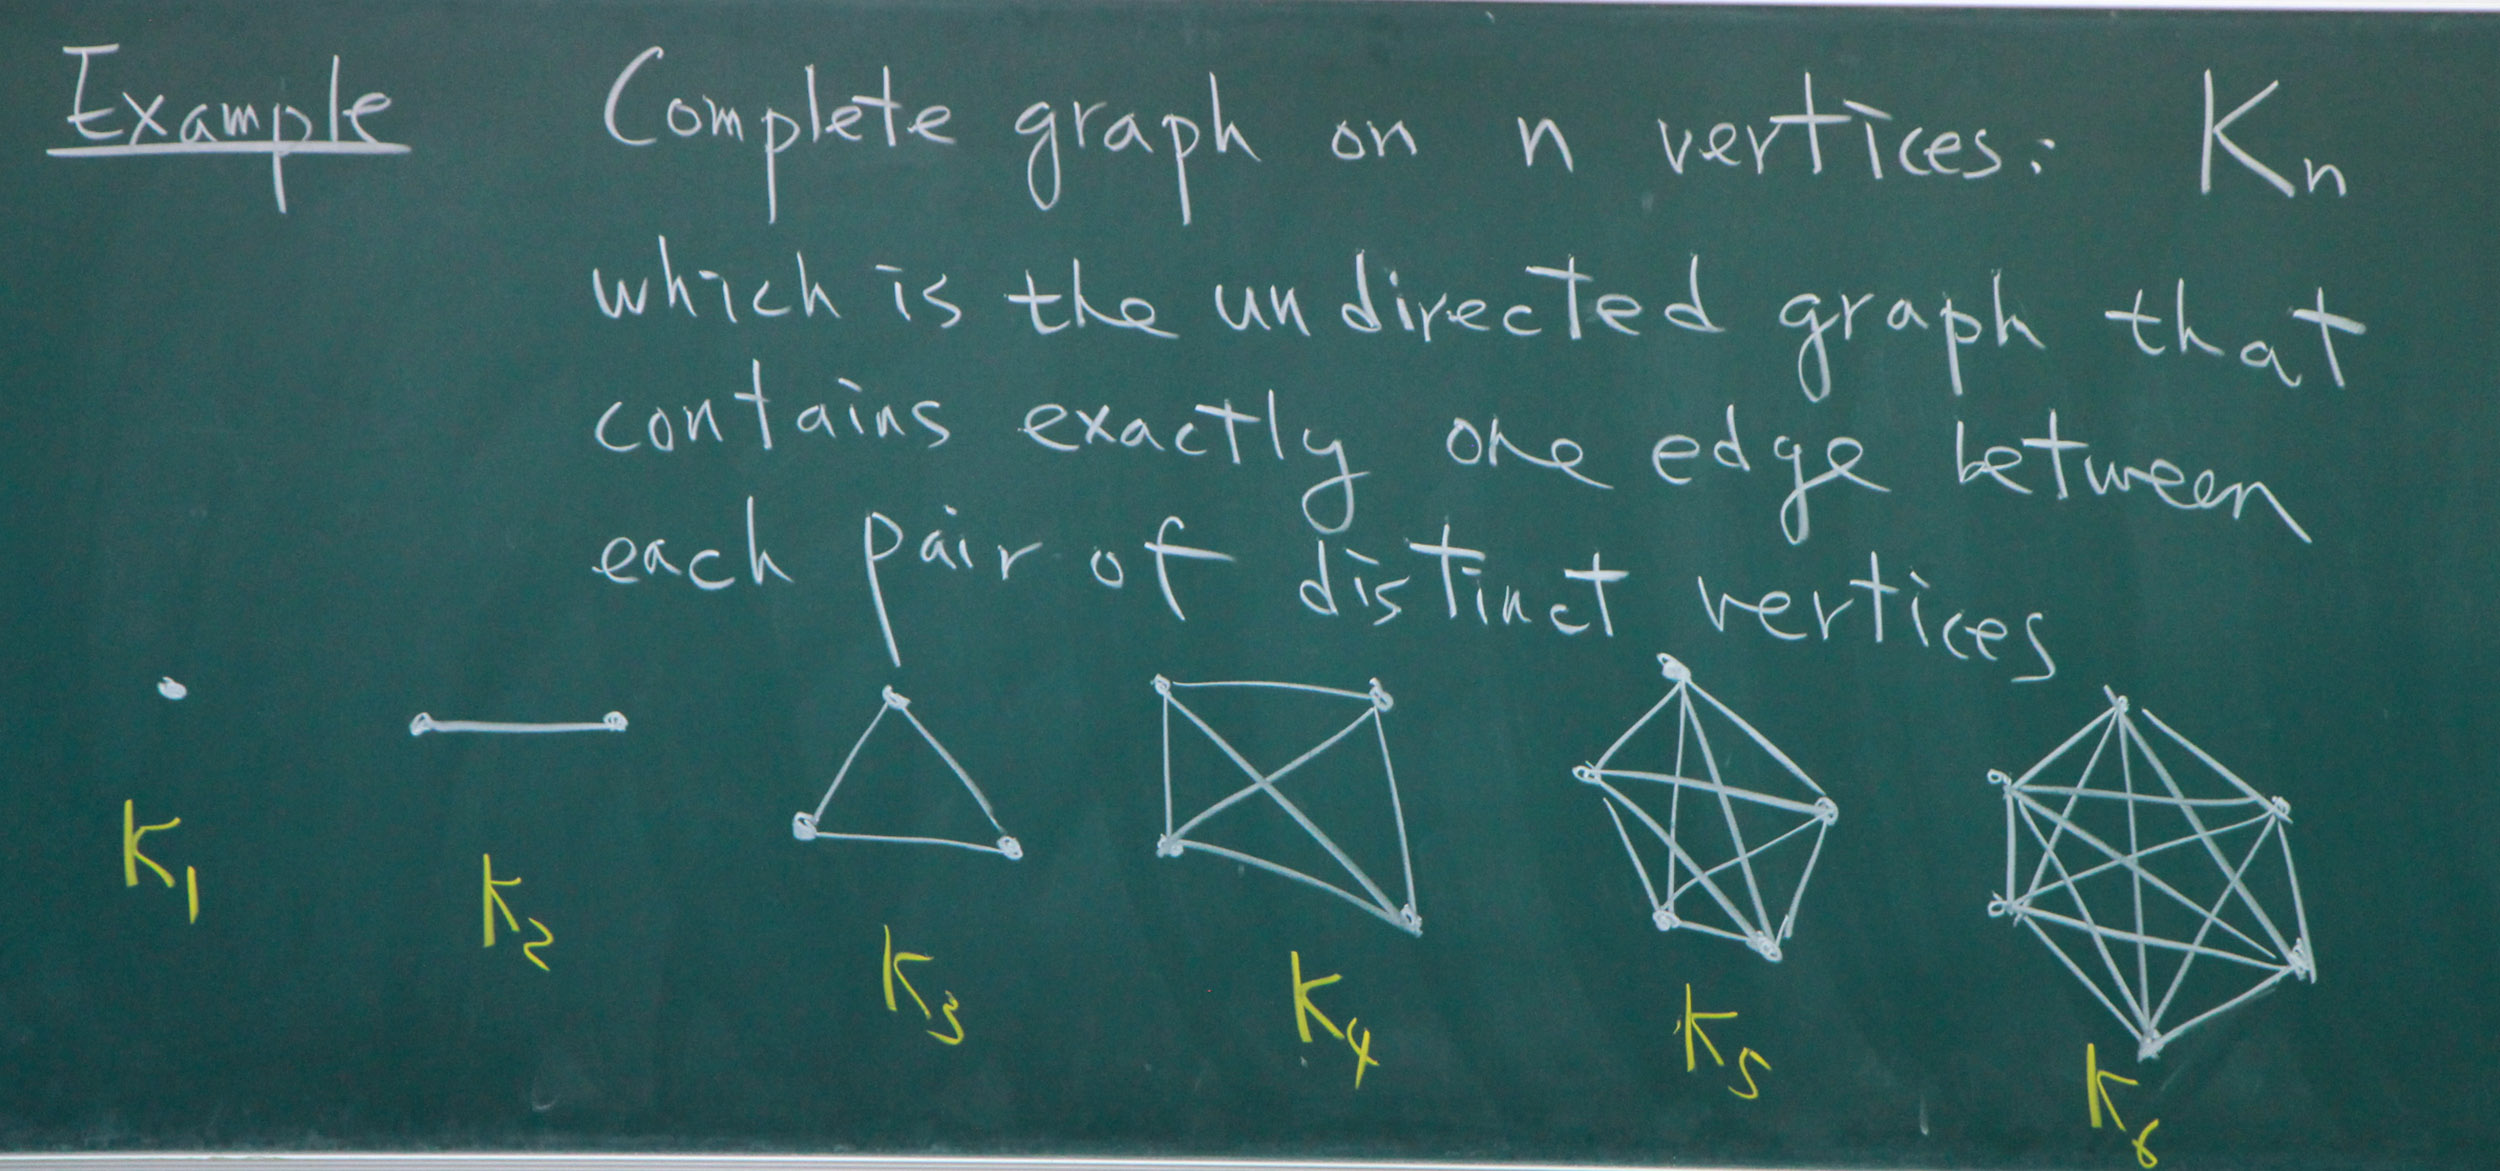 Example Complete graph on n vertices: Kn
which is the undirected graph that
contains exactly one edge between
each pair of distinct vertices
K1 K2 K3 K4 K5 K6